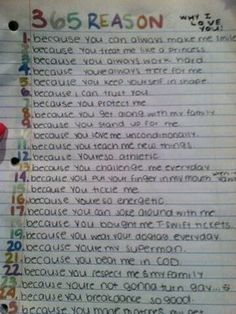 365 REASON WHY I LOVE YOU!
1. because you can always make me smile
2. because you treat me like a princess
3. because you always work hard
4. because youre always there for me
5. because you keep yourself in shape
6. because I can trust you
7. because you protect me
8. because you get along with my family
9. because you stand up for me
10. because you love me unconditionally
11. because you teach me new things
12. because youre so athletic
13. because you challenge me everyday
14. because you put your finger in my mouth when
15. because you tickle me
16. because youre so energetic
17. because you can joke around with me
18. because you bought me T-Swift tickets
19. because you wear your dogtags everyday
20. because youre my superman.
21. because you believe in GOD.
22. because you respect me & my family
23. because youre not gonna turn gay...
24. because you breakdance so good.
because you make